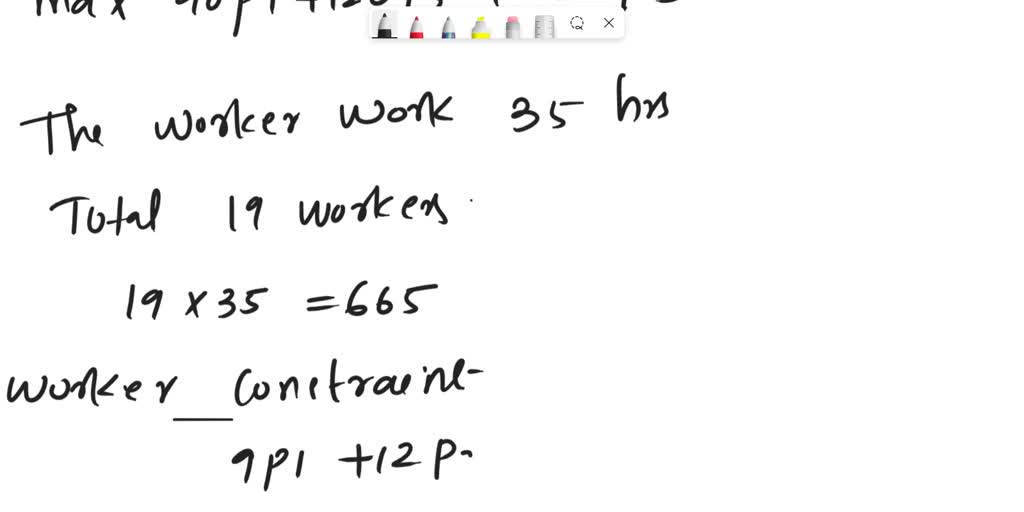 max
The worker work 35 hrs
Total 19 workers
19 x 35 = 665
worker constraint
9p1 + 12p